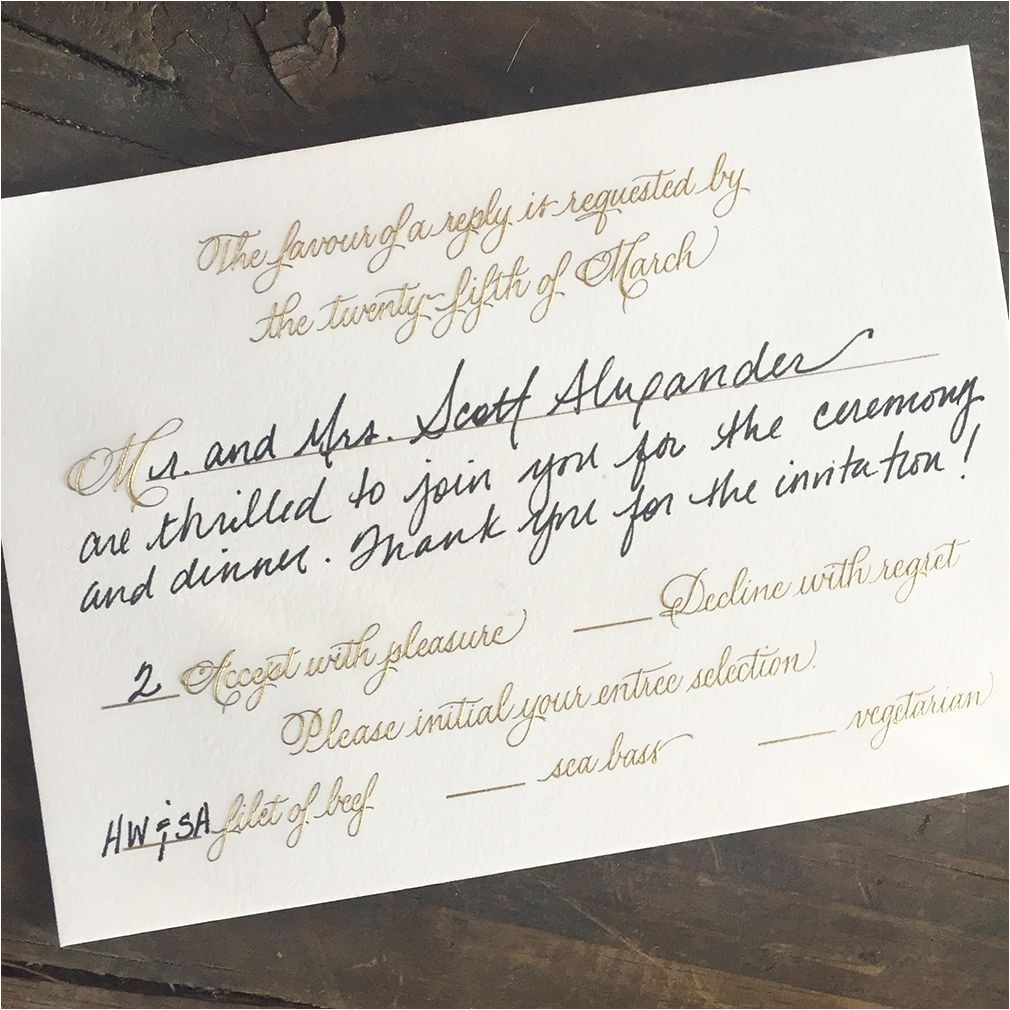 The favour of a reply is requested by
the twenty-fifth of March
Mr. and Mrs. Scott Alexander
are thrilled to join you for the ceremony
and dinner. Thank you for the invitation!
2 Accept with pleasure Decline with regret
Please initial your entree selection.
HW & SA filet of beef sea bass vegetarian